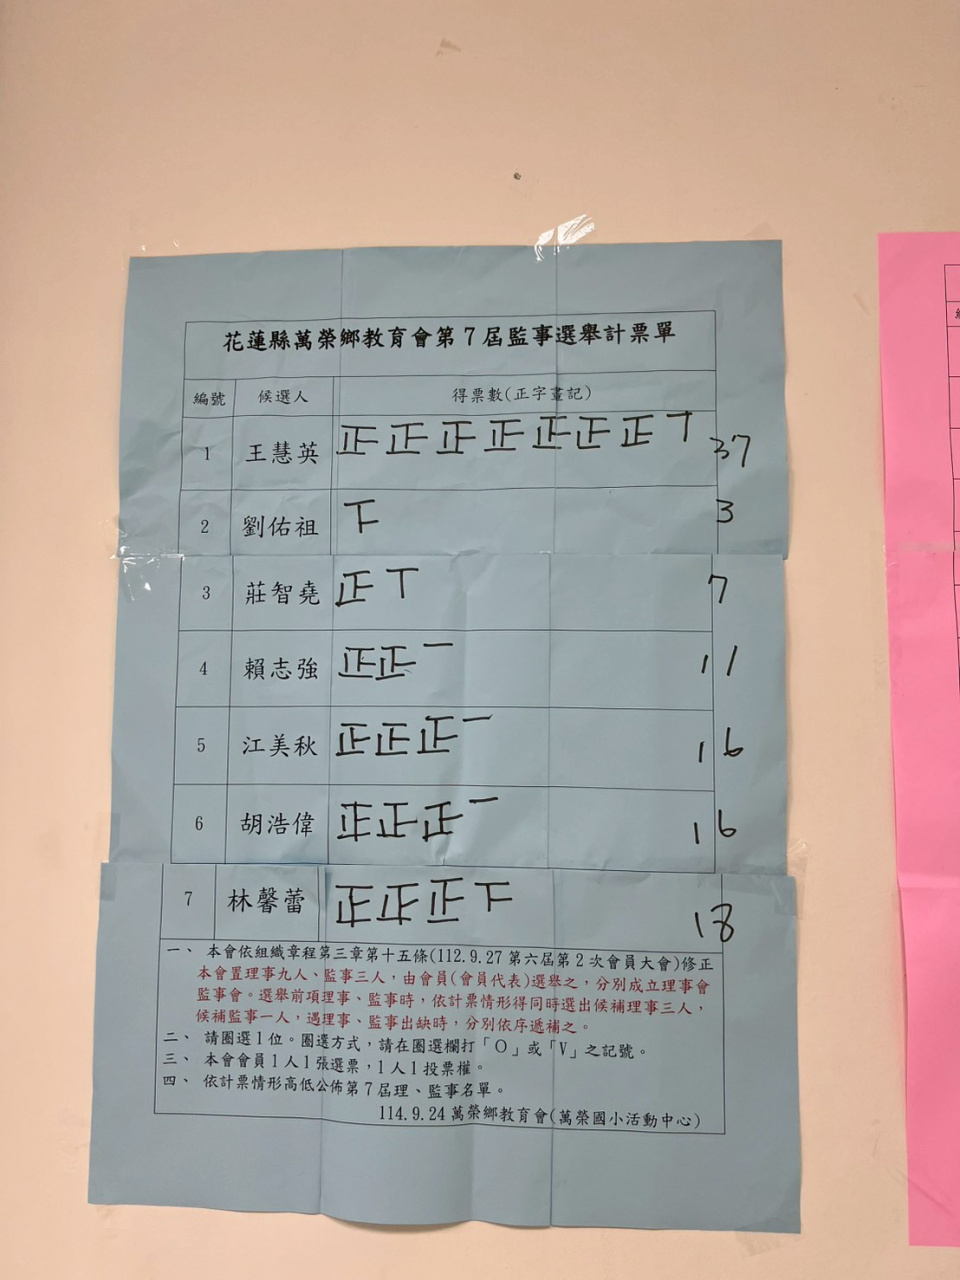 花蓮縣萬榮鄉教育會第7屆監事選舉計票單
編號 候選人 得票數(正字畫記)
1 王慧英 正正正正正正正丅 37
2 劉佑祖 下 3
3 莊智堯 正丅 7
4 賴志強 正正一 11
5 江美秋 正正正一 16
6 胡浩偉 正正正一 16
7 林馨蕾 正正正下 18
一、 本會依組織章程第三章第十五條(112.9.27第六屆第2次會員大會)修正
本會置理事九人、監事三人,由會員(會員代表)選舉之,分別成立理事會
監事會。選舉前項理事、監事時,依計票情形得同時選出候補理事三人,
候補監事一人,遇理事、監事出缺時,分別依序遞補之。
二、 請圈選1位。圈選方式,請在圈選欄打「O」或「V」之記號。
三、 本會會員1人1張選票,1人1投票權。
四、 依計票情形高低公佈第7屆理、監事名單。
114.9.24萬榮鄉教育會(萬榮國小活動中心)